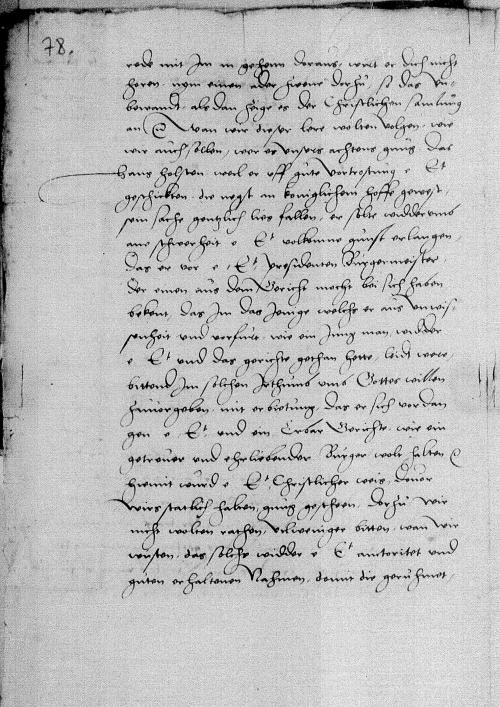 78.
rede mit Im in gehem daraus, wirt er dich nicht
horen, nym einen ader zwene derzu, ist das
bewandt, alsdan zeige es der Christlichen samlung
an Wan wir dieser lere wolten volgen, wie
wir auch sollen, wer es unsers achtens gnug, das
hans holsten weil er uff gute vortrostung e Et
geschickten, die negst an koniglichem hoffe gewest,
sein sache gentzlich lies fallen, er solte widderumb
ane schwerheit e Et volkomne gunst erlangen,
das er vor e Et presidenten Burgermeister,
der einen aus dem Gericht mocht bei sich haben
bekent, das Im das Jenige welchs er aus unwis-
senheit und vorfurt, wie ein Jung man, widder
e Et und das gerichte gethan hette, leidt were,
bittend Im solchen Irthumb umb Gottes willen
zuvorgeben, mit erbietung, das er sich vordan
gen e Et und ein Erbar Gerichte, wie ein
getreuer und ehrliebender Burger wolt halten
hiemit wurd e Et Christlicher weis,
wirs statlich halten, gnug gescheen, derzu wir
nicht wolten rathen, vilweniger bitten, wan wir
wusten, das solchs widder e Et autoritet und
guten erhaltenen Nahmen, domit die geruhmet,